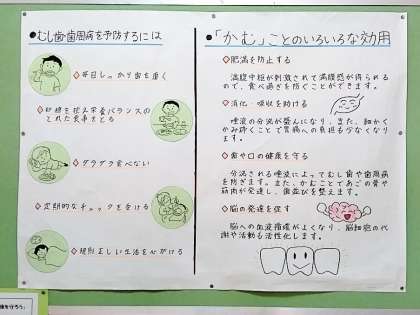 ●むし歯・歯周病を予防するには
◇毎日しっかり歯を磨く
◇砂糖を控え栄養バランスの
とれた食事をとる
◇ダラダラ食べない
◇定期的なチェックを受ける
◇規則正しい生活を心がける
●「かむ」ことのいろいろな効用
◇肥満を防止する
満腹中枢が刺激されて満腹感が得られる
ので、食べ過ぎを防ぐことができます。
◇消化・吸収を助ける
唾液の分泌が盛んになり、また、細かく
かみ砕くことで胃腸への負担も少なくなり
ます。
◇歯や口の健康を守る
分泌される唾液によってむし歯や歯周病
を防ぎます。また、かむことであごの骨や
筋肉が発達し、歯並びを整えます。
◇脳の発達を促す
脳への血液循環がよくなり、脳細胞の代
謝や活動も活性化します。